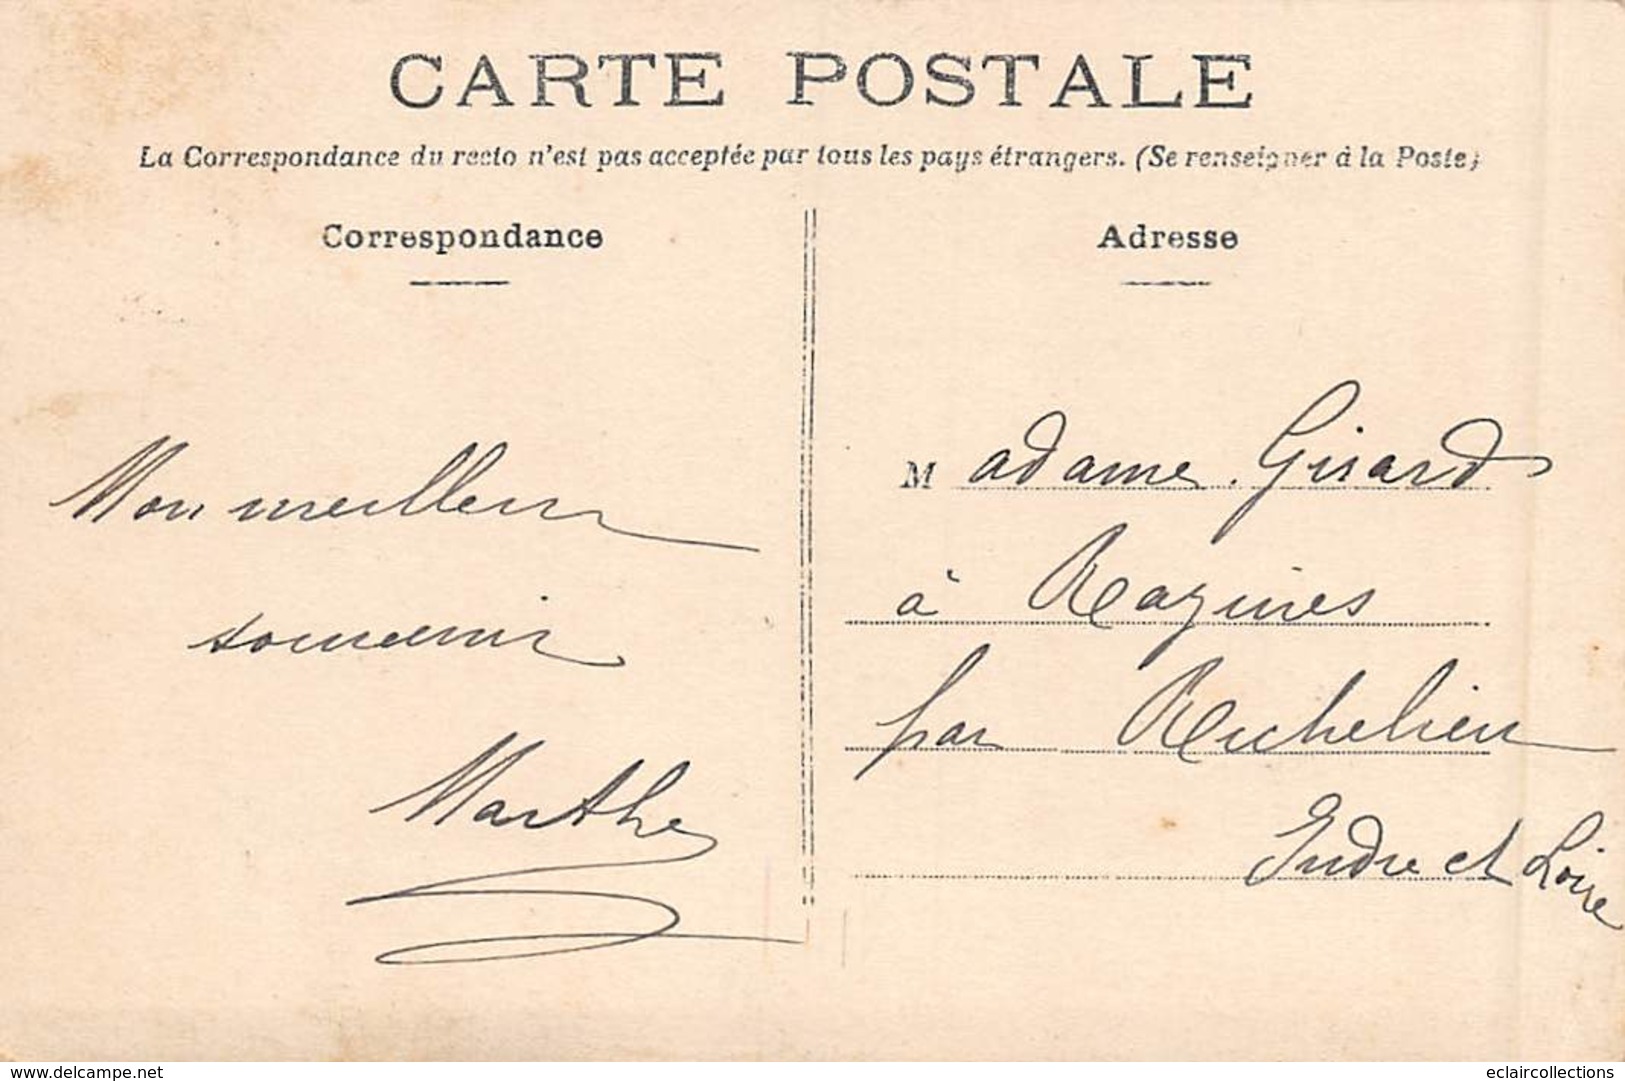 CARTE POSTALE
La Correspondance du recto n'est pas acceptée par tous les pays étrangers. (Se renseigner à la Poste)
Correspondance
Mon meilleur
souvenir
Marthe
Adresse
Madame Girard
à Razines
par Richelieu
Indre et Loire
www.delcampe.net
eclaircollections